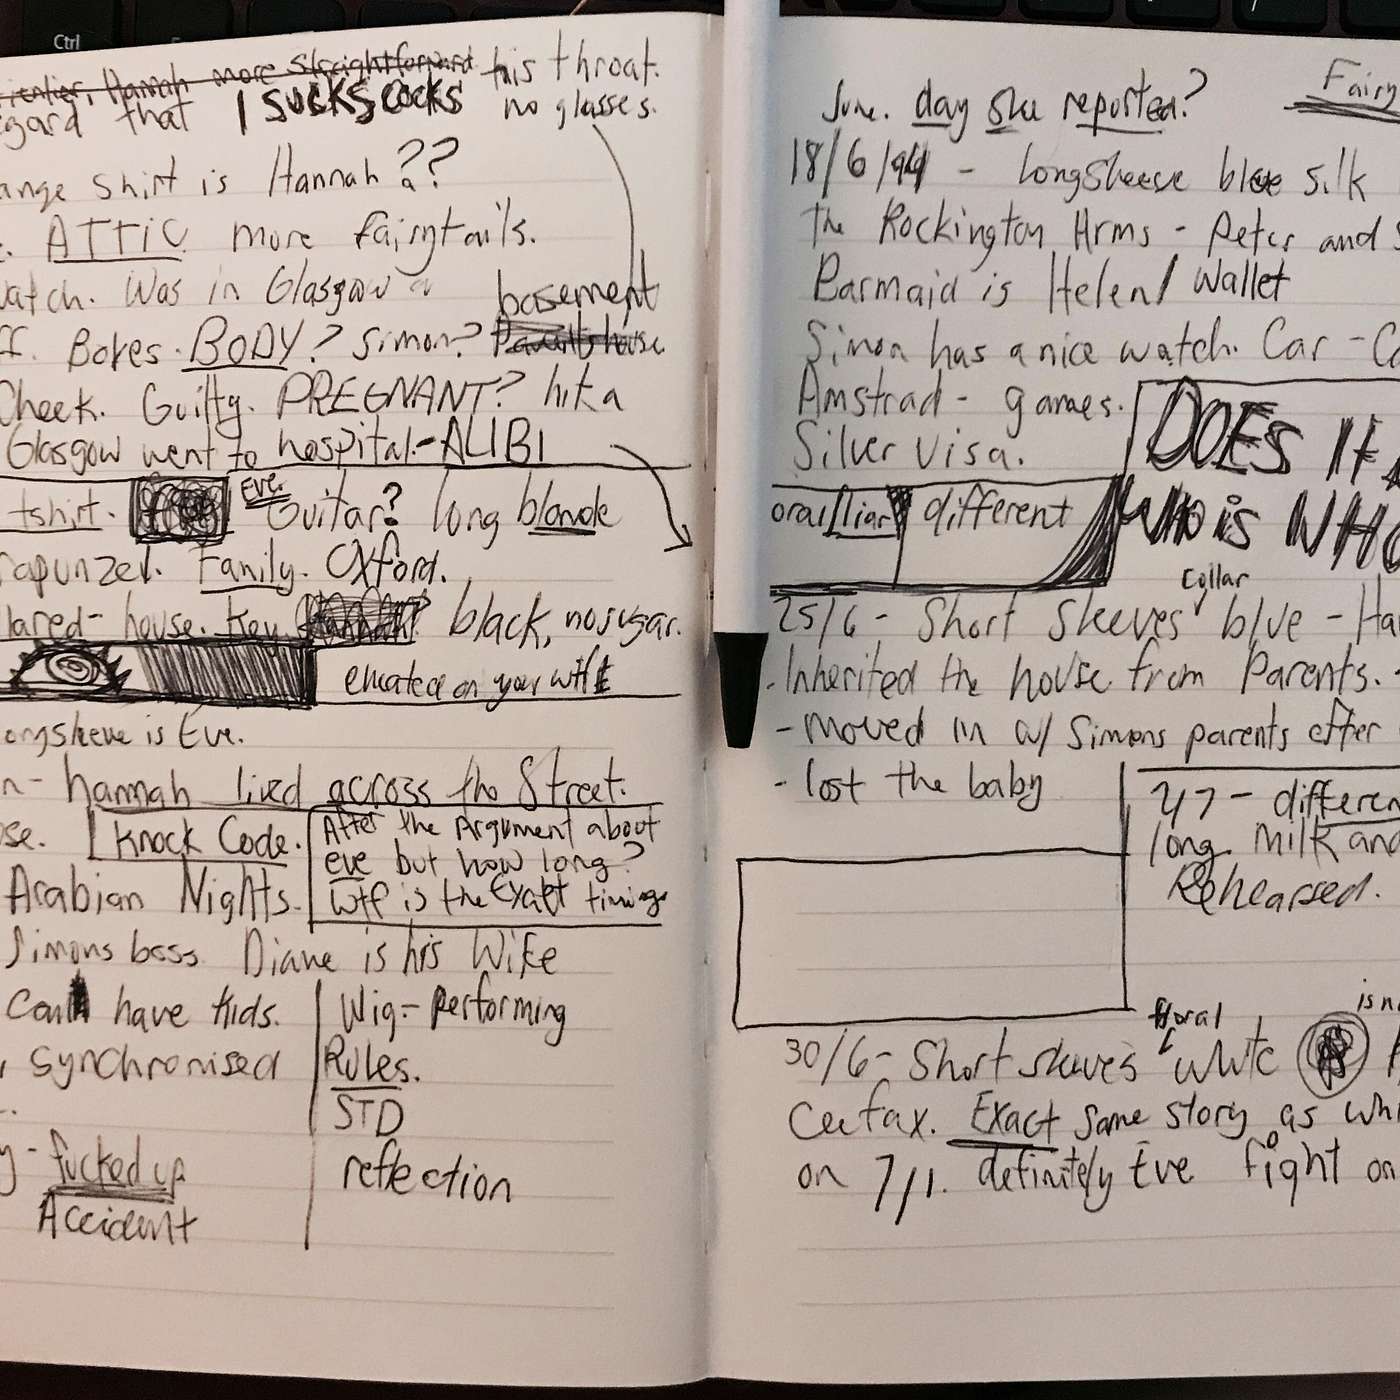 Ctrl
rientier, Hannah more straightforward his throat.
egard that I SUCKS COCKS no glasses.
ange shirt is Hannah??
e. ATTIC more fairytails.
watch. Was in Glasgow
basement
ff. Bores. BODY? Simon? Parents house
Cheek. Guilty. PREGNANT? hit a
Glasgow went to hospital - ALIBI
tshirt. Eve. Guitar? long blonde
rapunzel. Family. Oxford.
lared - house. Key black, no sugar.
on your
ongsleeve is Eve.
n - hannah lived across the Street.
se. Knock Code.
After the Argument about
eve but how long?
wtf is the Exact timing
Arabian Nights.
Simons boss. Diane is his Wife
Can have kids.
synchronised
y - fucked up
Accident
Wig - Performing
Rules.
STD
reflection
June. day she reported? Fairy
18/6/94 - longsleeve blue silk
The Rockington Arms - Peter and S
Barmaid is Helen/ Wallet
Simon has a nice watch. Car - Co
Amstrad - games.
Silver Visa.
DOES IT
WHO is WHO
oral liar different
25/6 - Short Sleeves collar blue - Ha
- Inherited the house from Parents.
- moved in w/ Simons parents after
- lost the baby
2/7 - differen
long. Milk and
Rehearsed.
30/6 - Short sleeves floral white is n
Ceefax. Exact same story as whi
on 7/1. definitely Eve fight on